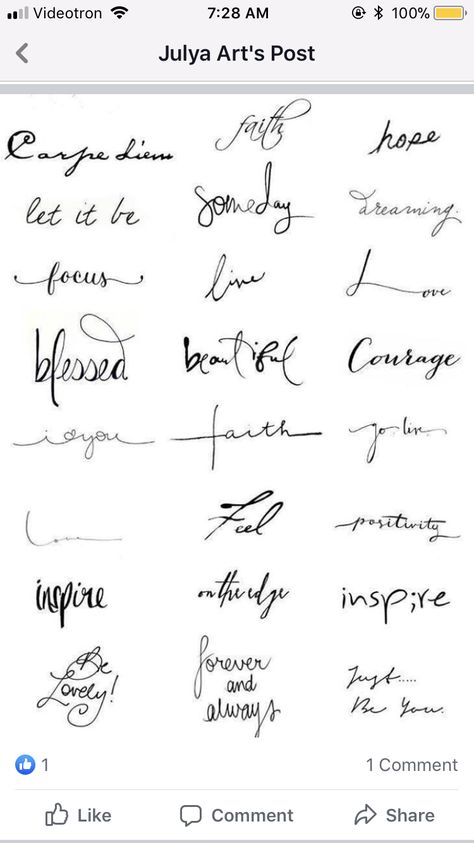 Videotron 7:28 AM 100%
Julya Art's Post
Carpe diem faith hope
let it be someday dreaming.
focus live Love
blessed beautiful Courage
i you faith go live
Love Feel positivity
inspire on the edge insp;re
Be
Lovely!
forever
and
always
Just.....
Be You.
1 1 Comment
Like Comment Share